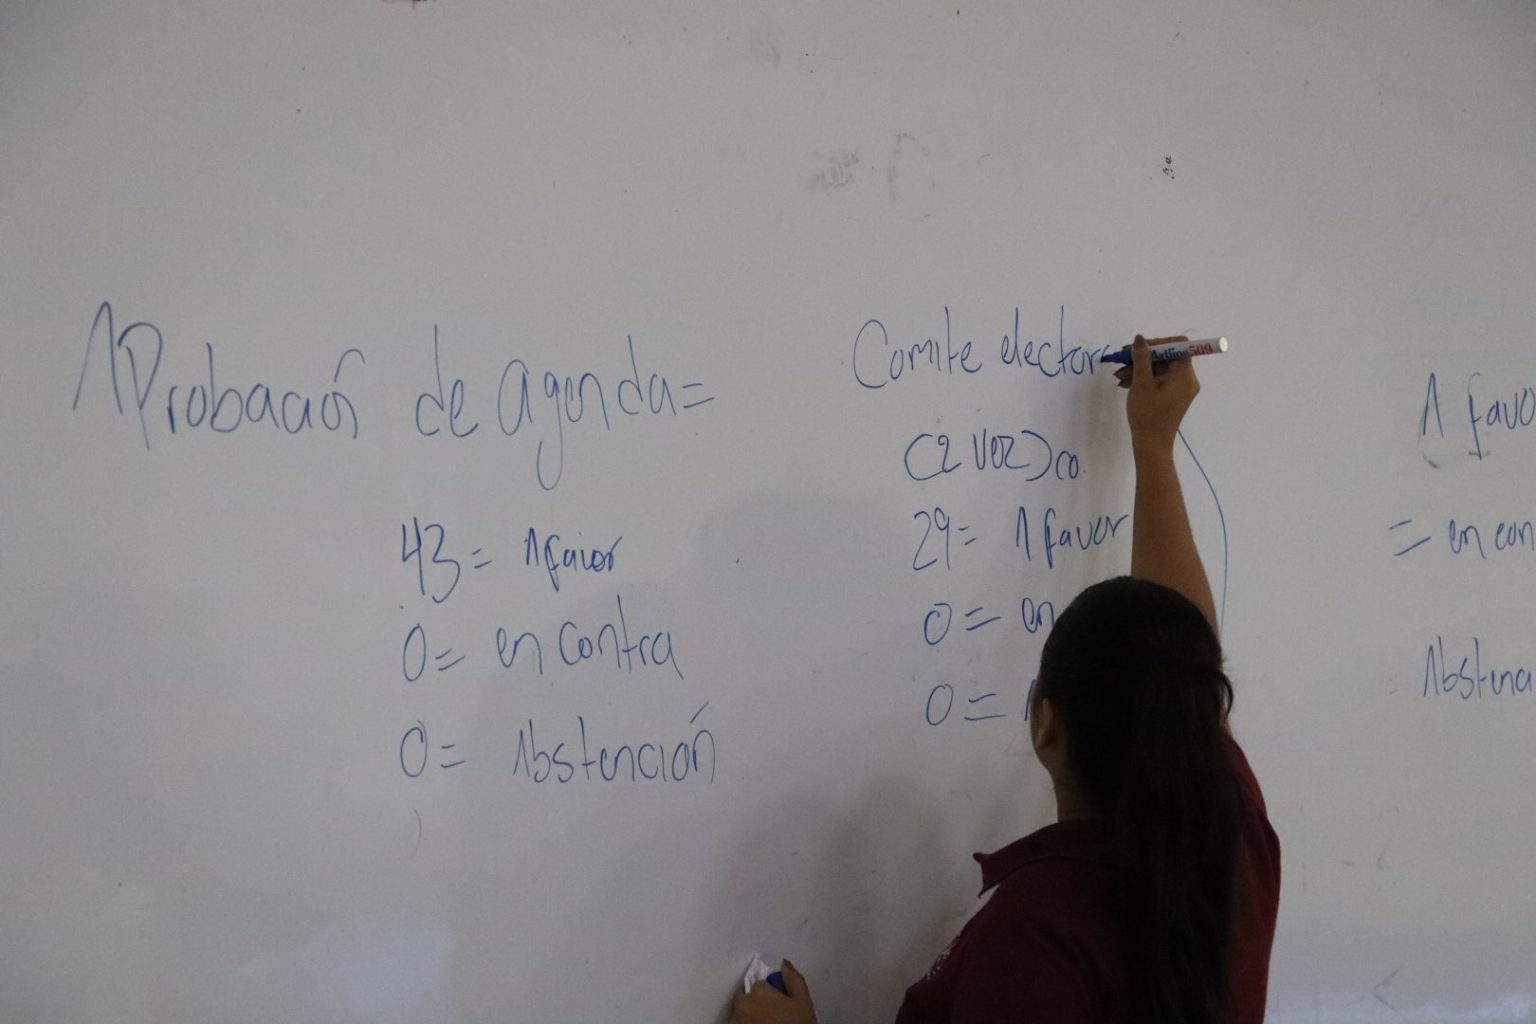 Aprobación de agenda=
43= A favor
0= en contra
0= Abstención
Comite elector
(2 vez)co.
29= A favor
0= en
0= A
Artline 509
A favo
= en con
Abstenc